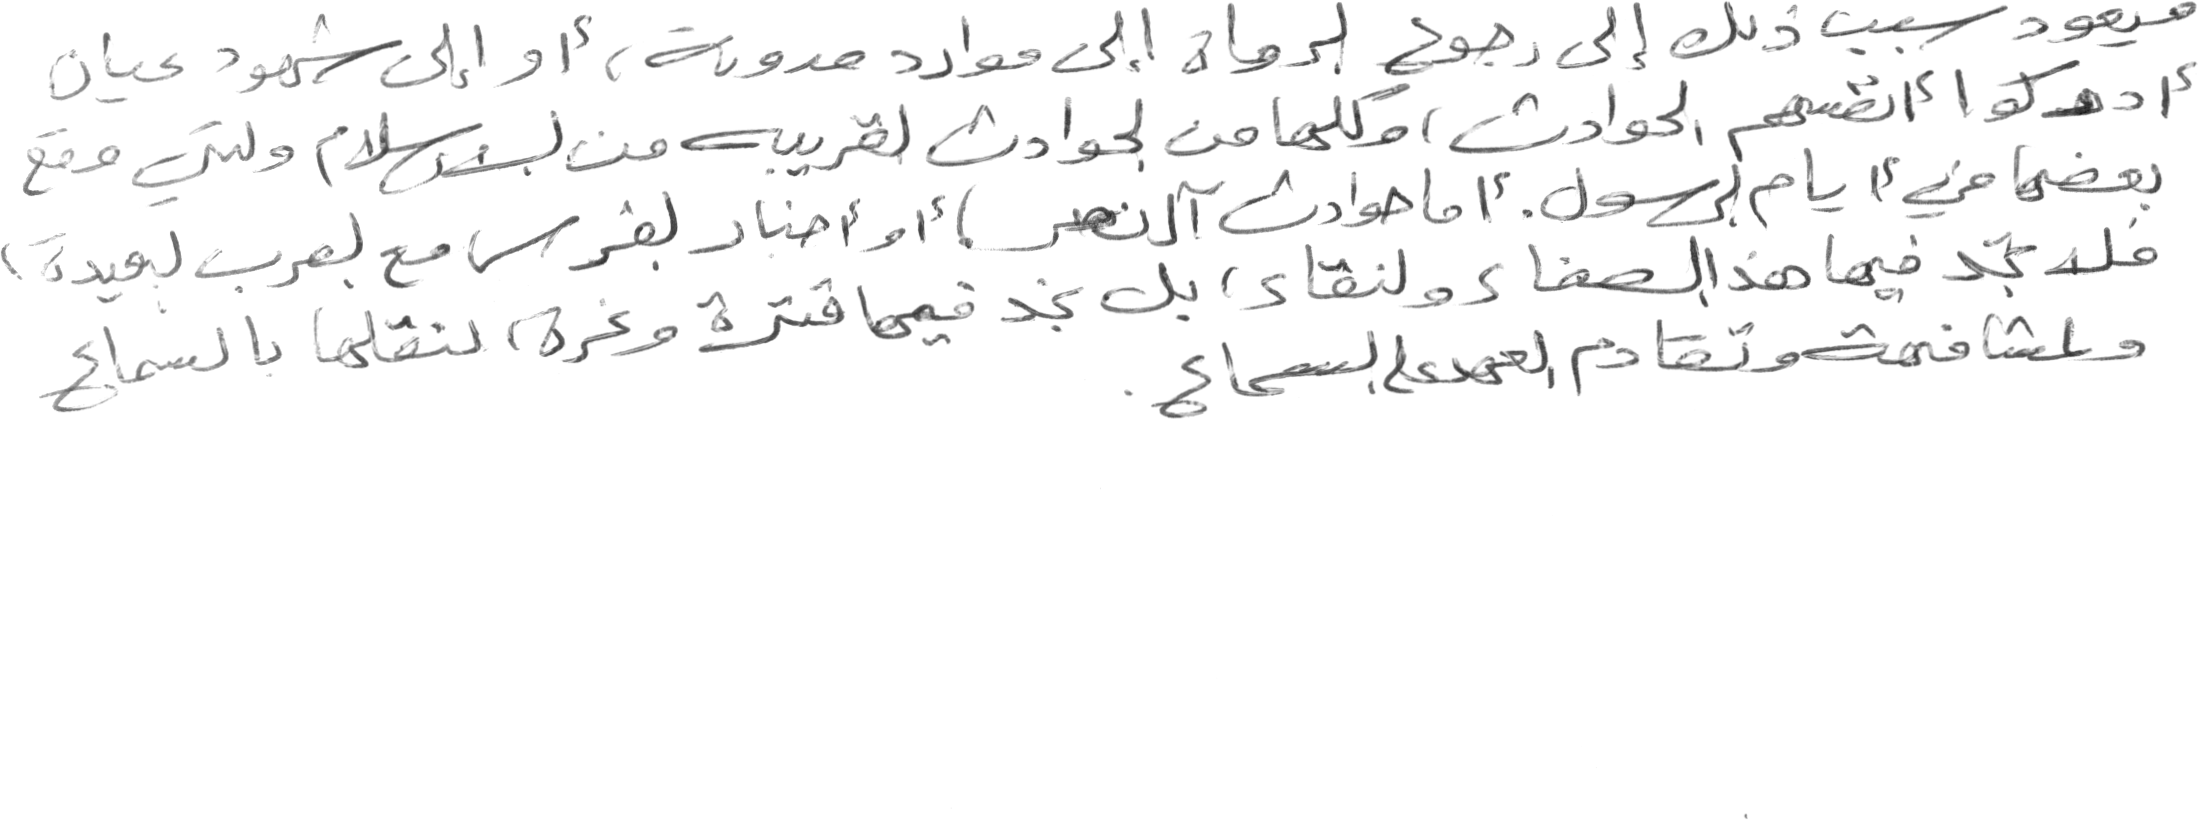 ويعود سبب ذلك إلى رجوع الرواة إلى موارد مدونة، أو إلى شهود عيان
أدركوا أنفسهم الحوادث، وكلها من الحوادث القريبة من الإسلام والتي وقع
بعضها في أيام الرسول. أما حوادث آل نصر، أو أخبار الفرس مع العرب البعيدة،
فلا تجد فيها هذا الصفاء والنقاء، بل نجد فيها فترة وغرة، لنقلها بالسماع
والمشافهة وتقادم العهد على السماع.